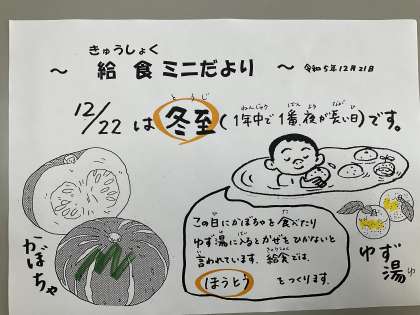 きゅうしょく
～ 給食ミニだより ～ 令和5年12月21日
とうじ ねんじゅう ばん よる なが ひ
12/22 は 冬至 (1年中で1番、夜が長い日) です。
かぼちゃ
ひ た
この日にかぼちゃを食べたり
ゆ はい
ゆず湯に入るとかぜをひかないと
い きゅうしょく
言われています。給食では、
ほうとう をつくります。
ゆず湯
ゆ